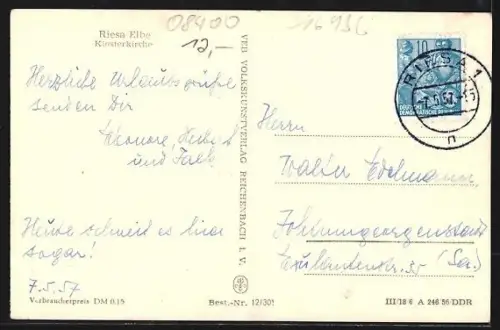 08400
12,-
Riesa Elbe
Klosterkirche
Herzliche Urlaubsgrüße
senden Dir
Eleonore, Herbert
und
Heute schneit es hier
sogar!
7.5.57
Verbraucherpreis DM 0.15
VEB VOLKSKUNSTVERLAG REICHENBACH I. V.
Best.-Nr. 12/301
10
DEUTSCHE
DEMOKRATISCHE REPUBLIK
RIESA 1
n
Herrn
Walter Edelmann
Johanngeorgenstadt
Exulantenstr. 35 (Sa.)
III/18 6 A 246 56 DDR